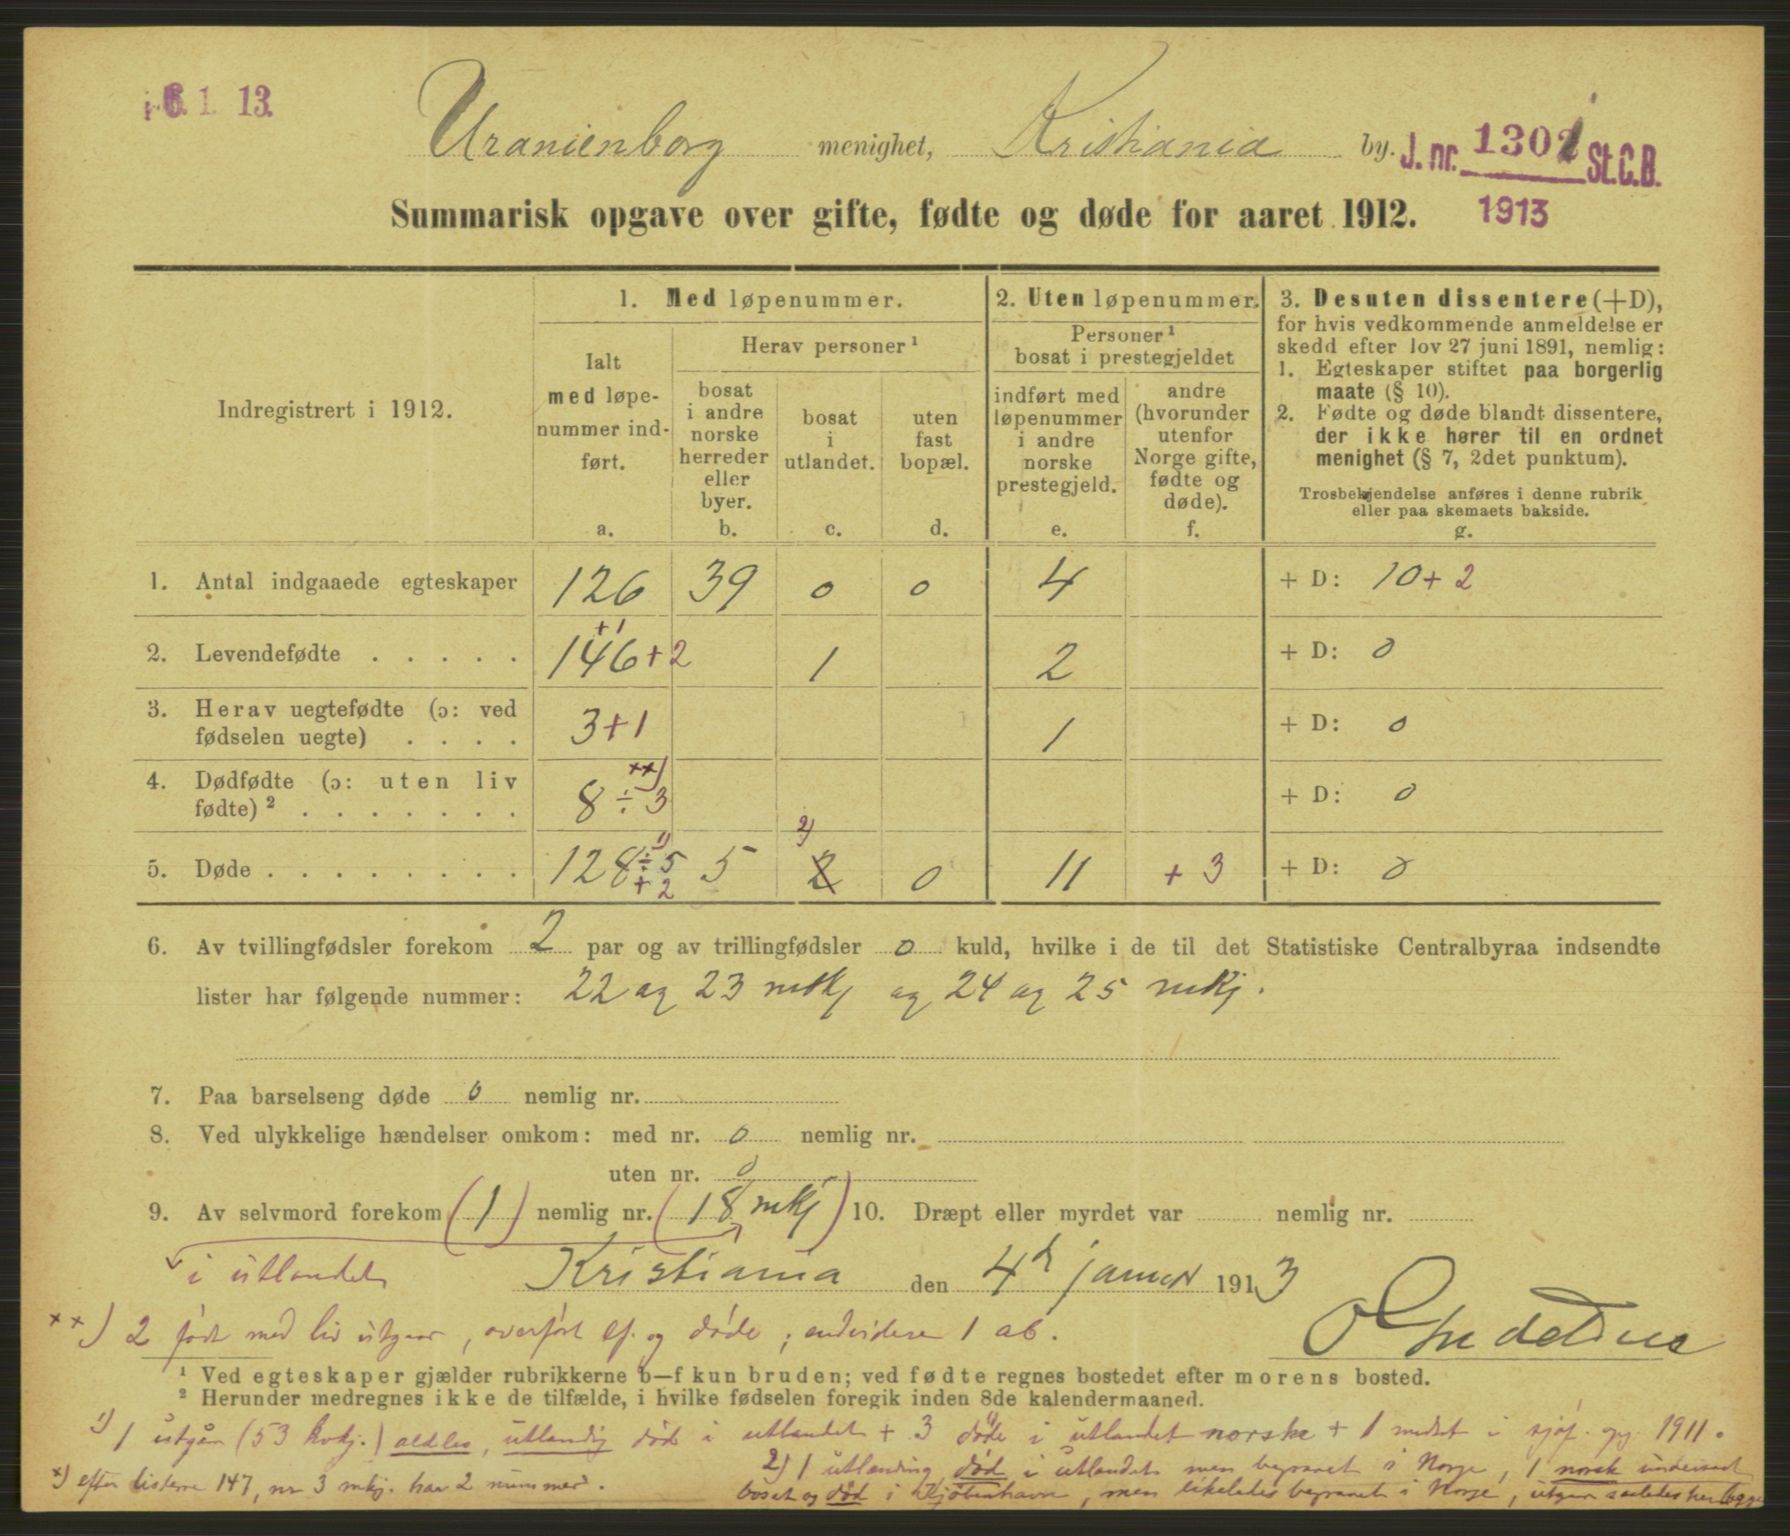 6. 1. 13.
Uranienborg menighet, Kristiania by.
J. nr. 1302 St.C.B.
1913
Summarisk opgave over gifte, fødte og døde for aaret 1912.
Indregistrert i 1912.
1. Med løpenummer.
Ialt med løpe-
nummer ind-
ført.
a.
Herav personer ¹
bosat
i andre
norske
herreder
eller
byer.
b.
bosat
i
utlandet.
c.
uten
fast
bopæl.
d.
2. Uten løpenummer.
Personer ¹
bosat i prestegjeldet
indført med
løpenummer
i andre
norske
prestegjeld.
e.
andre
(hvorunder
utenfor
Norge gifte,
fødte og
døde).
f.
3. Desuten dissentere (+D),
for hvis vedkommende anmeldelse er
skedd efter lov 27 juni 1891, nemlig:
1. Egteskaper stiftet paa borgerlig
maate (§ 10).
2. Fødte og døde blandt dissentere,
der ikke hører til en ordnet
menighet (§ 7, 2det punktum).
Trosbekjendelse anføres i denne rubrik
eller paa skemaets bakside.
g.
1. Antal indgaaede egteskaper 126 39 0 0 4 + D: 10 + 2
+1
2. Levendefødte . . . . . 146 + 2 1 2 + D: 0
3. Herav uegtefødte (ɔ: ved
fødselen uegte) . . . . 3 + 1 1 + D: 0
4. Dødfødte (ɔ: uten liv
fødte) ² . . . . . . . 8 ÷ 3 ××) + D: 0
5. Døde . . . . . . . . 128 ÷ 5 ¹) + 2 5 2 ²) 0 11 + 3 + D: 0
6. Av tvillingfødsler forekom 2 par og av trillingfødsler 0 kuld, hvilke i de til det Statistiske Centralbyraa indsendte
lister har følgende nummer: 22 og 23 mkj og 24 og 25 mkj.
7. Paa barselseng døde 0 nemlig nr.
8. Ved ulykkelige hændelser omkom: med nr. 0 nemlig nr.
uten nr. 0
9. Av selvmord forekom (1) nemlig nr. (18 mkj) 10. Dræpt eller myrdet var nemlig nr.
i utlandet
Kristiania den 4de januar 1913
××) 2 født med liv utgaar, overført lf. og døde; endvidere 1 ab.
¹ Ved egteskaper gjælder rubrikkerne b—f kun bruden; ved fødte regnes bostedet efter morens bosted.
² Herunder medregnes ikke de tilfælde, i hvilke fødselen foregik inden 8de kalendermaaned.
¹) 1 utgaar (53 kvkj.) aldeles, utlending død i utlandet + 3 døde i utlandet norske + 1 medt i sjøf. og. 1911.
×) efter listerne 147, nr 3 mkj. har 2 nummer.
2) 1 utlænding, død i utlandet men begravet i Norge, 1 norsk undersaat
bosat og død i Kjøbenhavn, men likeledes begravet i Norge, utgaar saaledes her begge